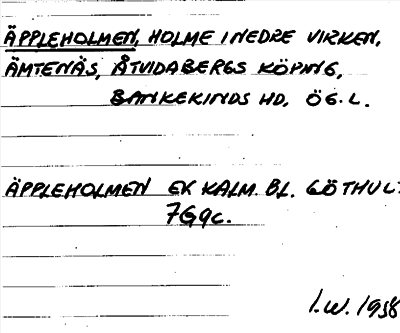 ÄPPLEHOLMEN, HOLME I NEDRE VIRKEN,
ÄMTENÄS, ÅTVIDABERGS KÖPING,
BANKEKINDS HD, ÖG. L.
ÄPPLEHOLMEN EK KALM. BL. GÖTHULT
7G9c.
I.W. 1958